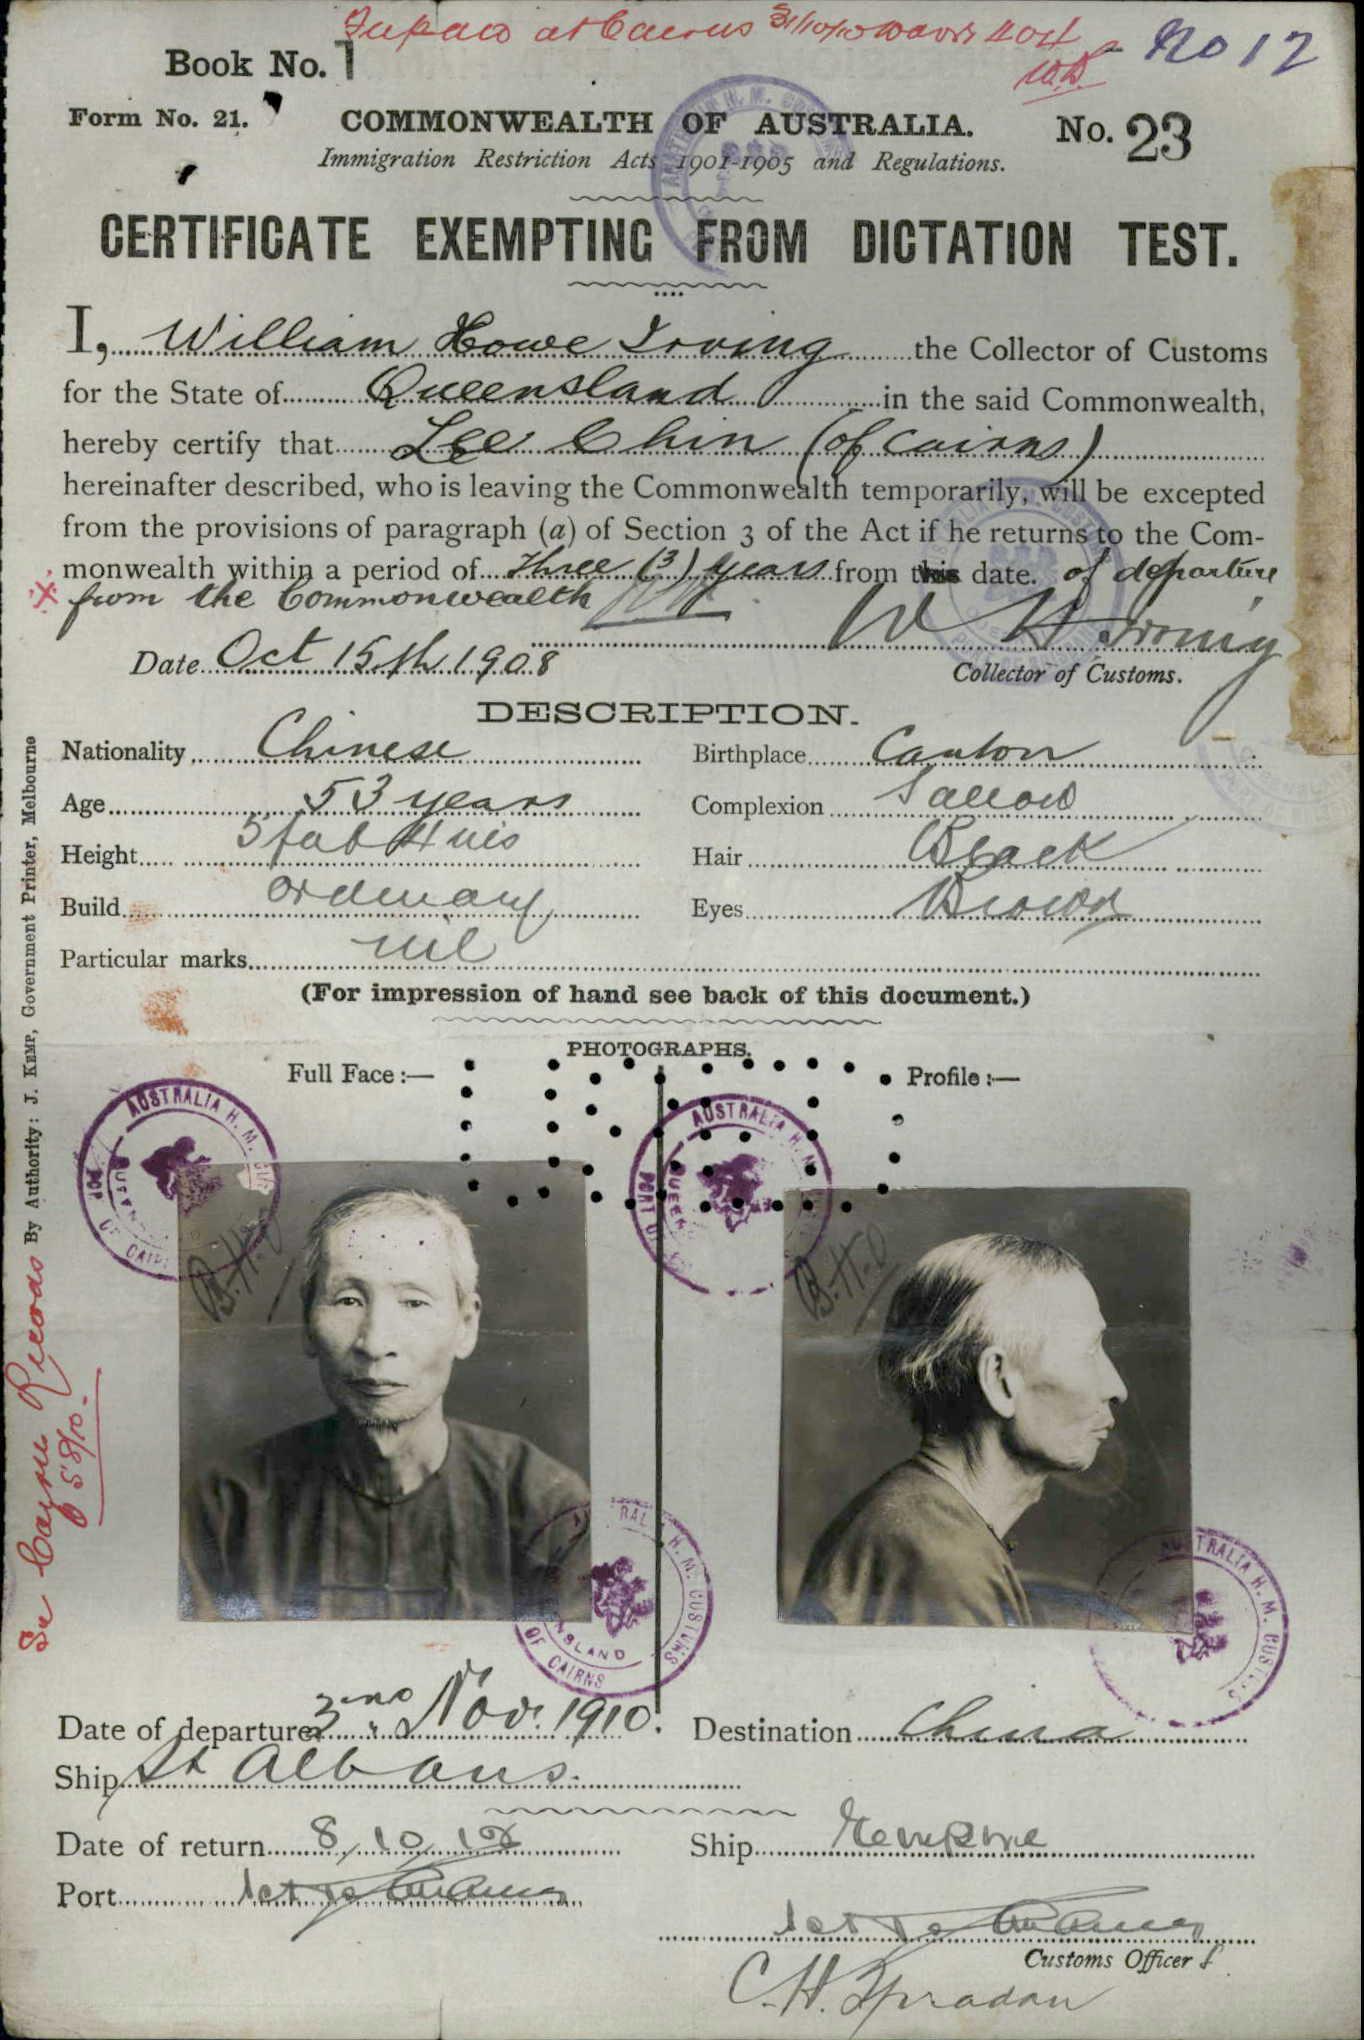 at Cairns 31/10/10
No 12
Book No. 1
Form No. 21.
COMMONWEALTH OF AUSTRALIA.
No. 23
Immigration Restriction Acts 1901-1905 and Regulations.
CERTIFICATE EXEMPTING FROM DICTATION TEST.
I, William Howe Irving the Collector of Customs
for the State of Queensland in the said Commonwealth,
hereby certify that Lee Chin (of Cairns)
hereinafter described, who is leaving the Commonwealth temporarily, will be excepted
from the provisions of paragraph (a) of Section 3 of the Act if he returns to the Com-
monwealth within a period of Three (3) years from this date. of departure
from the Commonwealth
W H Irving
Date Oct 15th 1908
Collector of Customs.
DESCRIPTION.
Nationality Chinese
Birthplace Canton
Age 53 years
Complexion Sallow
Height 5 feet 4 ins
Hair Black
Build ordinary
Eyes Brown
Particular marks nil
(For impression of hand see back of this document.)
PHOTOGRAPHS.
Full Face :—
Profile :—
AUSTRALIA H. M.
PORT OF CAIRNS
AUSTRALIA H. M.
PORT
B.H.O
B.H.O
AUSTRALIA H. M. CUSTOMS
QUEENSLAND
OF CAIRNS
AUSTRALIA H. M. CUSTOMS
By Authority: J. KEMP, Government Printer, Melbourne
Cairns Records
58/10.
Date of departure 3rd Nov. 1910.
Destination China
Ship St Albans.
Date of return 8/10/12
Ship Empire
Port
Customs Officer
C.H.